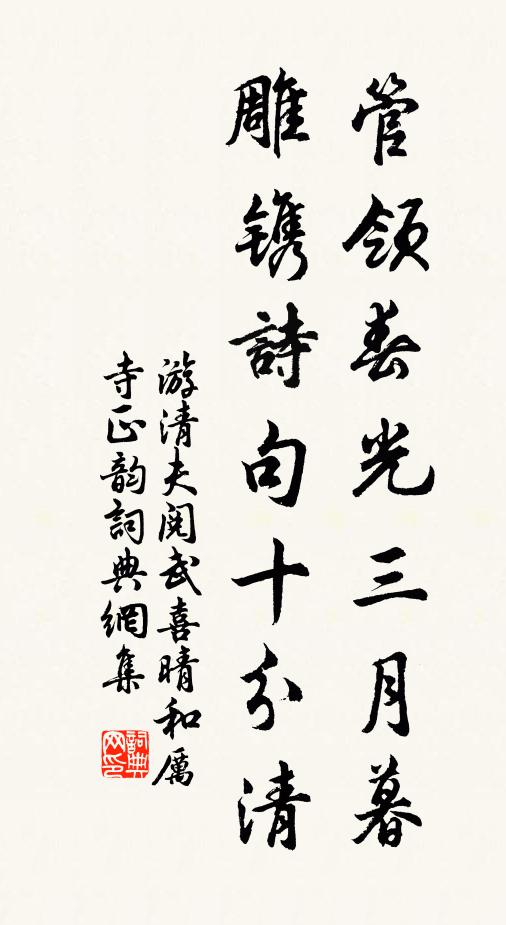 管領春光三月暮
雕鎸詩句十分清
游清夫閱武喜晴和厲
寺正韵詞典網集
詞典
网印